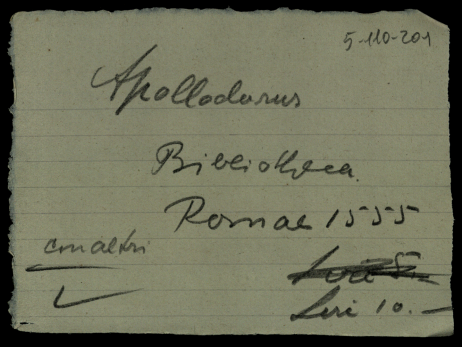 5-110-201
Apollodorus
Bibliotheca
Romae 1555
con altri
Leri 10.-